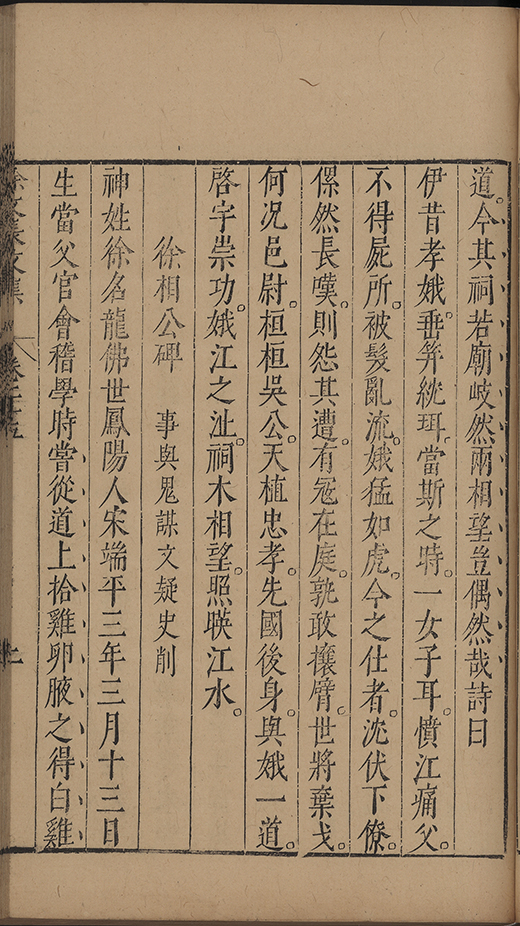 道今其祠若廟岐然兩相望豈偶然哉詩曰
伊昔孝娥垂笄統珥當斯之時一女子耳憤江痛父
不得屍所被髮亂流娥猛如虎今之仕者沈伏下僚
傫然長嘆則怨其遭有冦在庭孰敢攘臂世將棄戈
何况邑尉桓桓吳公天植忠孝先國後身與娥一道
啓宇崇功娥江之沚祠木相望照暎江水
徐相公碑　事與鬼謀文疑史削
神姓徐名龍佛世鳳陽人宋端平三年三月十三日
生當父官會稽學時嘗從道上拾雞卵腋之得白雞
徐文長文集
卷二十五